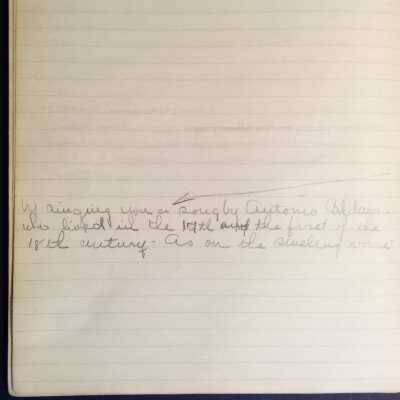 by singing you a song by Antonio Caldara
who lived in the 17th and the first of the
18th century - As on the swelling wave